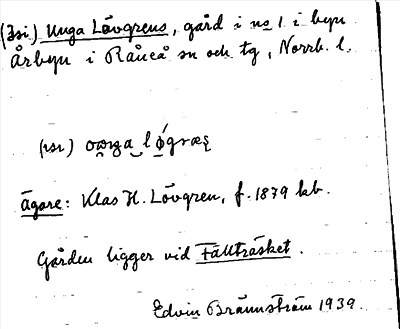 (3si.) Unga Lövgrens, gård i no 1 i byn
Årbyn i Råneå sn och tg, Norrb. l.
(rsr)
ägare: Klas H. Lövgren, f. 1879 hb.
Gården ligger vid Fällträsket.
Edvin Brännström 1939.